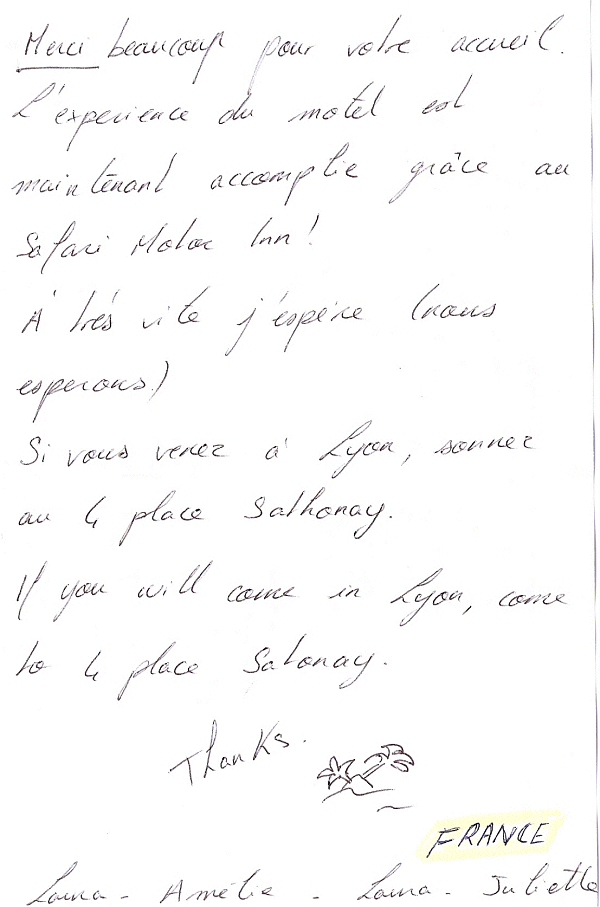 Merci beaucoup pour votre accueil.
L'experience du motel est
maintenant accomplie grâce au
Safari Motor Inn!
À très vite j'espère (nous
esperons)
Si vous venez à Lyon, sonnez
au 4 place Sathonay.
If you will come in Lyon, come
to 4 place Satonay.
Thanks.
FRANCE
Laura - Amélie - Laura - Juliette